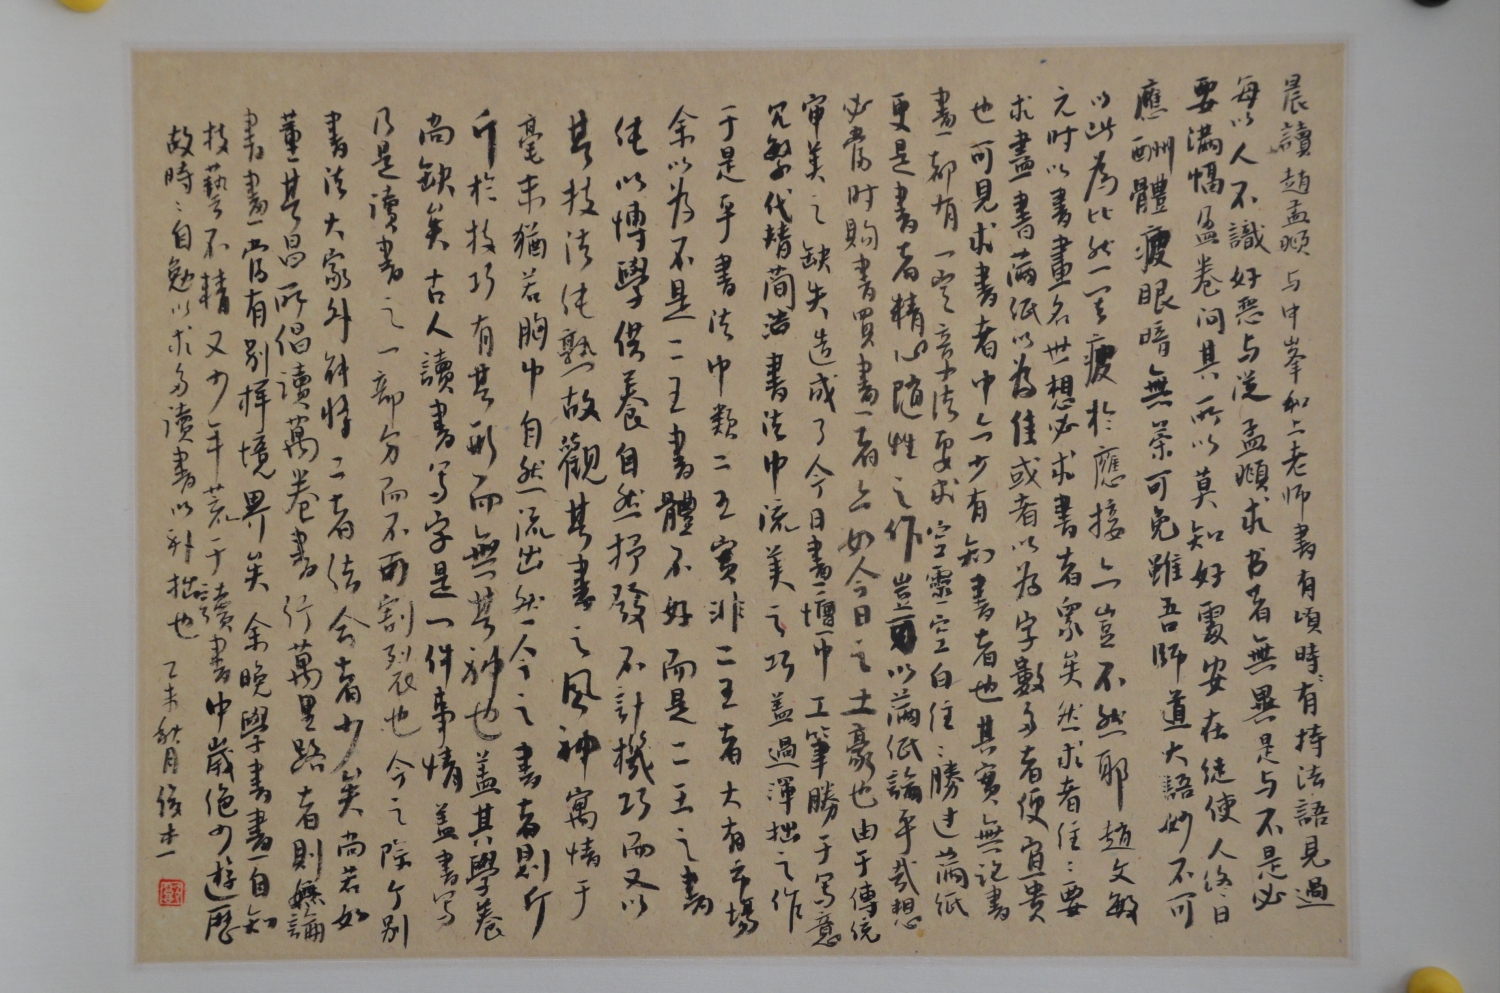 晨讀趙孟頫与中峯和上老师書有頃時有持法語見過
每以人不識好惡与送孟頫求书者無異是与不是必
要满幅盈卷问其所以莫知好处安在徒使人终日
應酬體疲眼暗無策可免雖吾師道大語妙不可
以此為比然一一疲於應接亦豈不然耶趙文敏
元时以書畫名世想必求書者衆矣然求者往往要
求畫書满紙以為佳或者以为字數多者便宜贵
也可見求書者中亦少有知書者也其實無论書
畫都有一定章法要求空靈空白往往勝过满纸
更是書者精心随性之作豈可以满纸論乎哉想
必當时购書買畫者亦如今日之土豪也由于傳统
审美之缺失造成了今日畫壇中工筆勝于写意
以繁代替简洁書法中流美之巧盖過渾拙之作
于是乎書法中類二王實非二王者大有市場
余以为不是二王書體不好而是二王之書
纯以博學供養自然抒發不計機巧而又以
其技法纯熟故觀其書之風神寓情于
毫末猶若胸中自然流出然今之書者則斤
斤於技巧有其形而無其神也盖其學養
尚缺矣古人讀書写字是一件事情盖書写
乃是读書之一部分而不可割裂也今之除个别
書法大家外能将二者结合者少矣尚若如
董其昌所倡讀萬卷書行萬里路者則嫌論
書畫當有别样境界矣余晚學書畫自知
技藝不精又少年荒于讀書中歲绝少遊歷
故時時自勉以求多读書以补拙也 乙未秋月